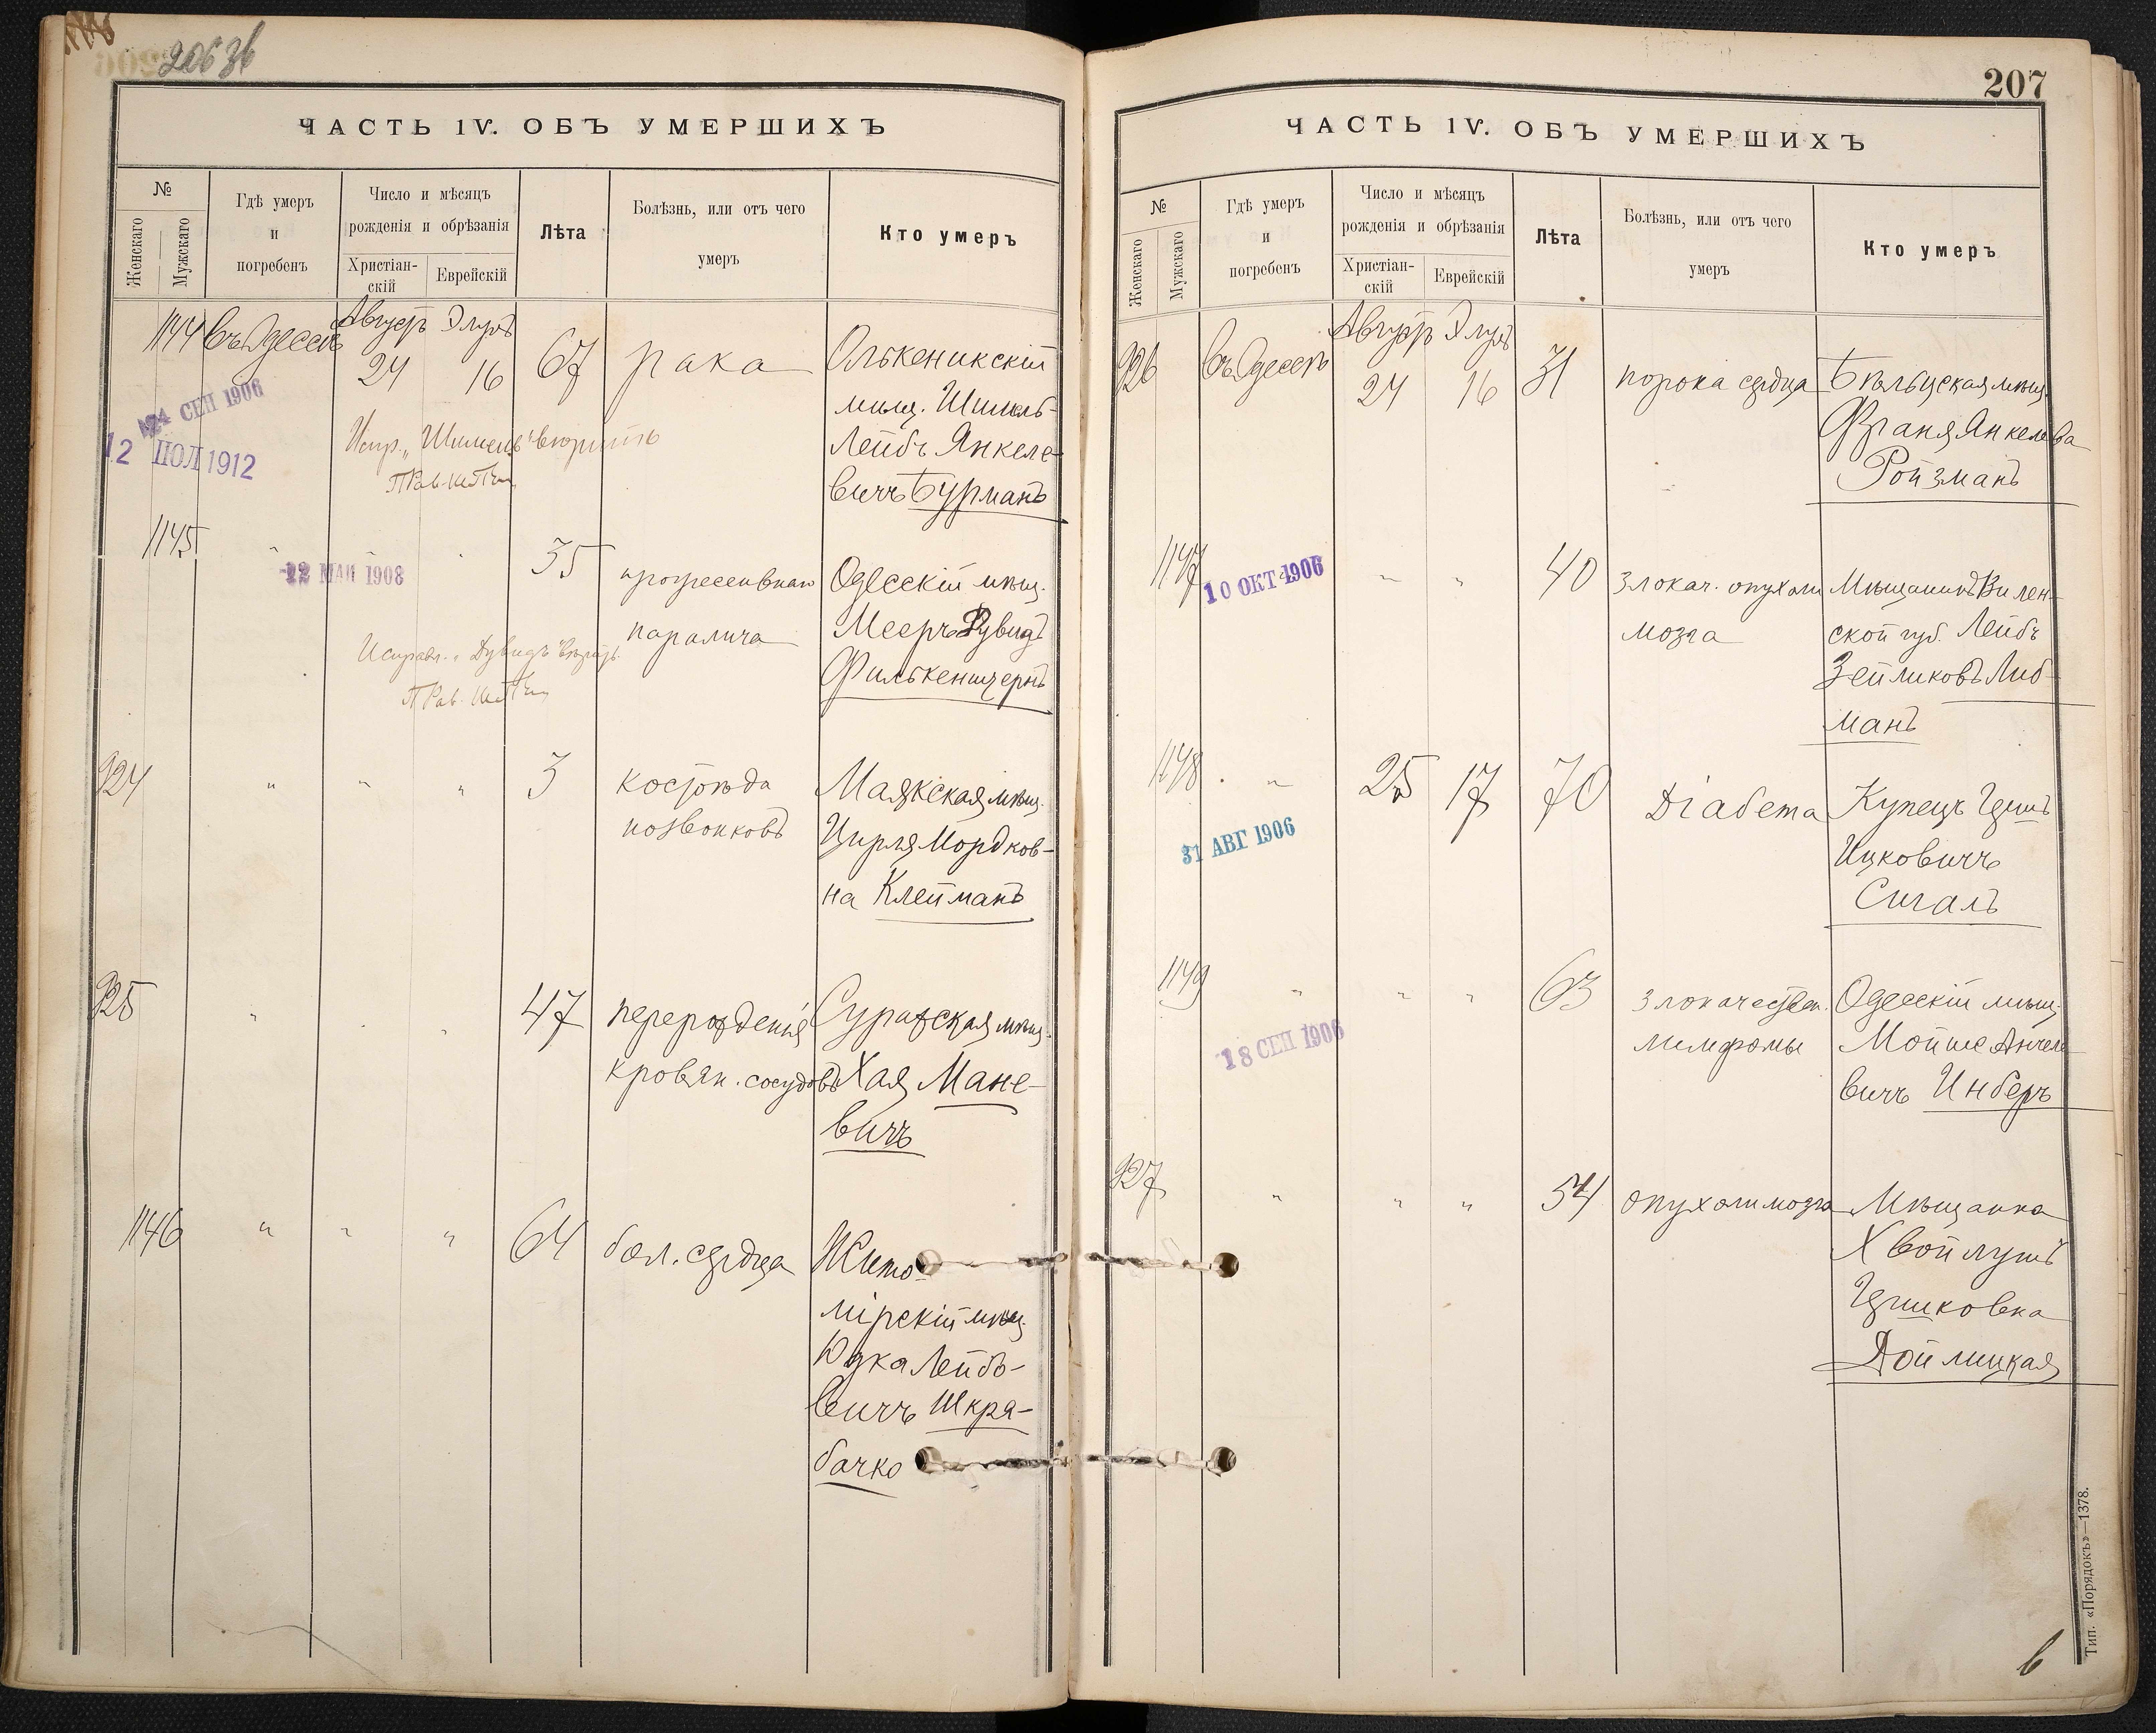 206 зв
ЧАСТЬ IV. ОБЪ УМЕРШИХЪ
№
Женскаго
Мужскаго
Гдѣ умеръ
и
погребенъ
Число и мѣсяцъ
рожденія и обрѣзанія
Христіан-
скій
Еврейскій
Лѣта
Болѣзнь, или отъ чего
умеръ
Кто умеръ
1144 въ Одессѣ Августъ Элулъ
24 16 67 рака Олькеникскій
мѣщ. Шимель-
Лейбъ Янкеле-
вичъ Бурманъ
24 СЕН 1906
12 ІЮЛ 1912
Испр. „Шимель" вѣрить
1145 " " " 35 прогрессивнаго Одесскій мѣщ.
паралича Мееръ Дувидъ
Филькенштернъ
22 МАЙ 1908
Исправл. „Дувидъ" вѣрить
924 " " " 3 костоѣда Маякская мѣщ.
позвонковъ Цирля Мордков-
на Клейманъ
925 " " " 47 перерожденія Суражская мѣщ.
кровян. сосудовъ Хая Мане-
вичъ
1146 " " " 64 бол. сердца Жито-
мірскій мѣщ.
Юдка Лейбо-
вичъ Шкра-
бачко
207
ЧАСТЬ IV. ОБЪ УМЕРШИХЪ
№
Женскаго
Мужскаго
Гдѣ умеръ
и
погребенъ
Число и мѣсяцъ
рожденія и обрѣзанія
Христіан-
скій
Еврейскій
Лѣта
Болѣзнь, или отъ чего
умеръ
Кто умеръ
926 въ Одессѣ Августъ Элулъ
24 16 31 порока сердца Бѣльцская мѣщ.
Франя Янкелева
Ройзманъ
1147 " " 40 злокач. опухоли Мѣщанинъ Вилен-
мозга ской губ. Лейбъ
Зейликовъ Либ-
манъ
10 ОКТ 1906
1148 " " 25 17 70 Діабета Купецъ Гершъ
Ицковичъ
Сигалъ
31 АВГ 1906
1149 " " " 63 злокачествен. Одесскій мѣщ.
лимфомы Мойше Анчеле-
вичъ Инберъ
18 СЕН 1906
927 " " " 54 опухоли мозга Мѣщанка
Хвойлушъ
Гершковна
Дойлицкая
Тип. «Порядокъ»—1378.